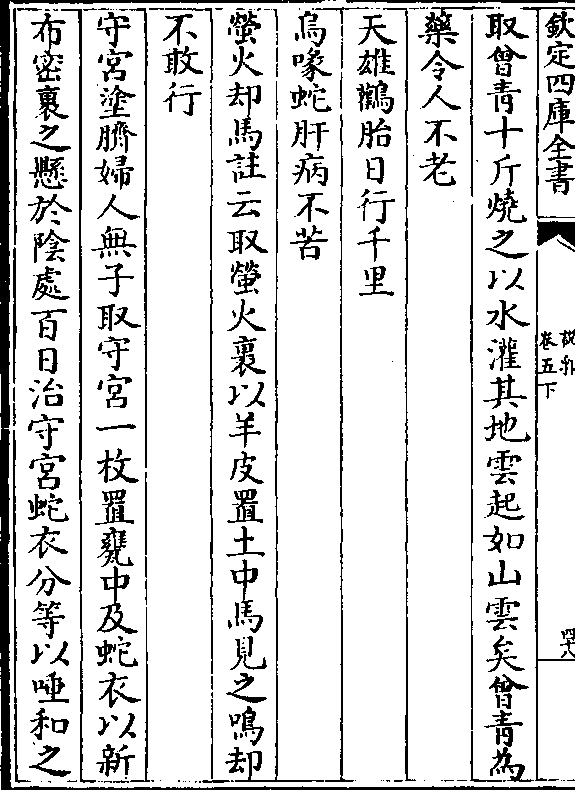 欽定四庫全書
說郛
卷五下
四十八
取曾青十斤燒之以水灌其地雲起如山雲矣曾青為
藥令人不老
天雄鸛胎日行千里
烏喙蛇肝病不苦
螢火却馬註云取螢火裹以羊皮置土中馬見之鳴却
不敢行
守宮塗臍婦人無子取守宮一枚置甕中及蛇衣以新
布密裹之懸於陰處百日治守宮蛇衣分等以唾和之